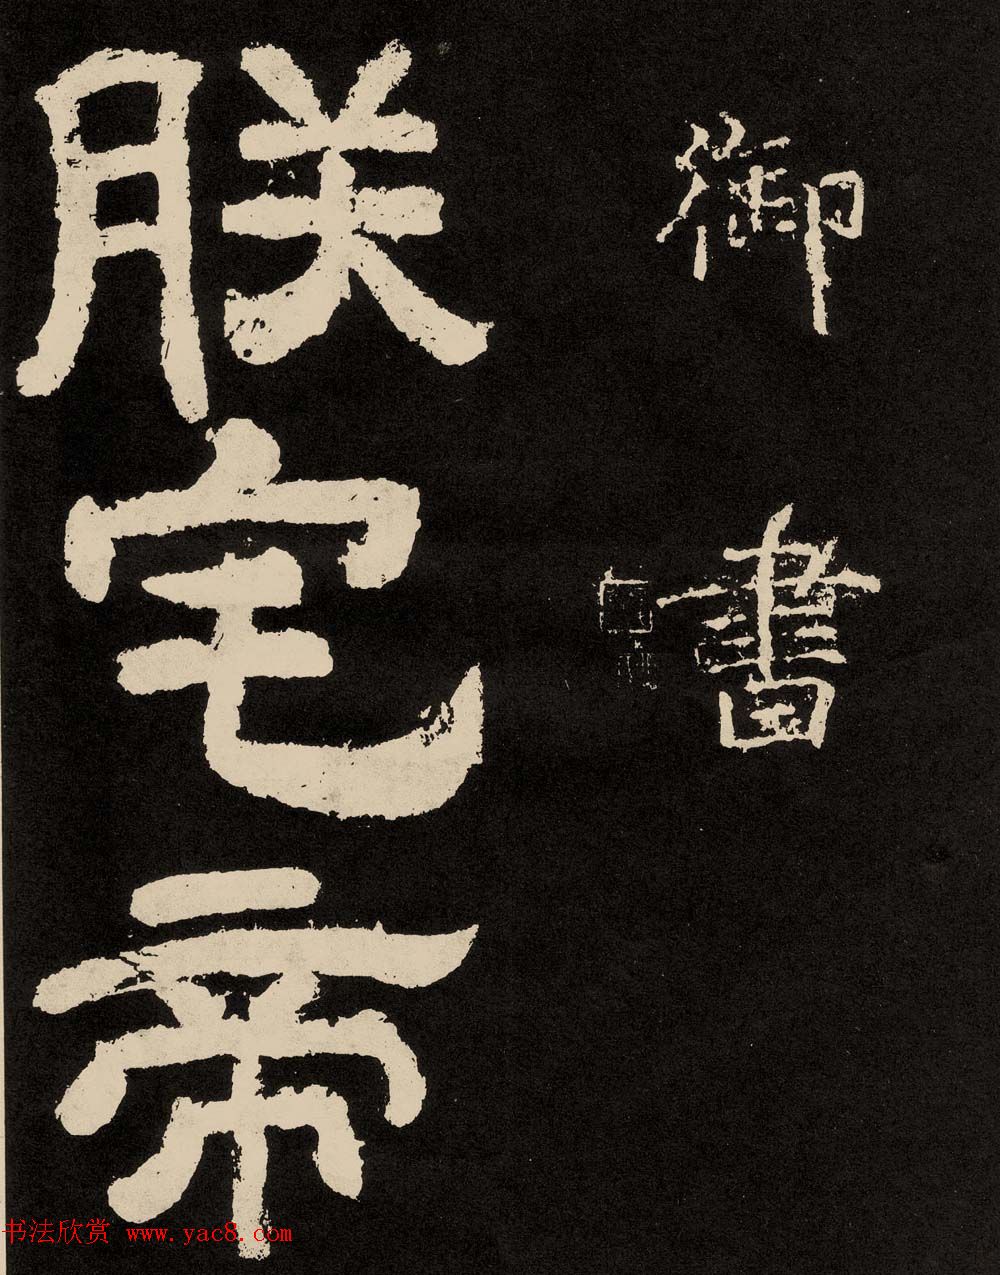 御書
朕宅帝
书法欣赏 www.yac8.com